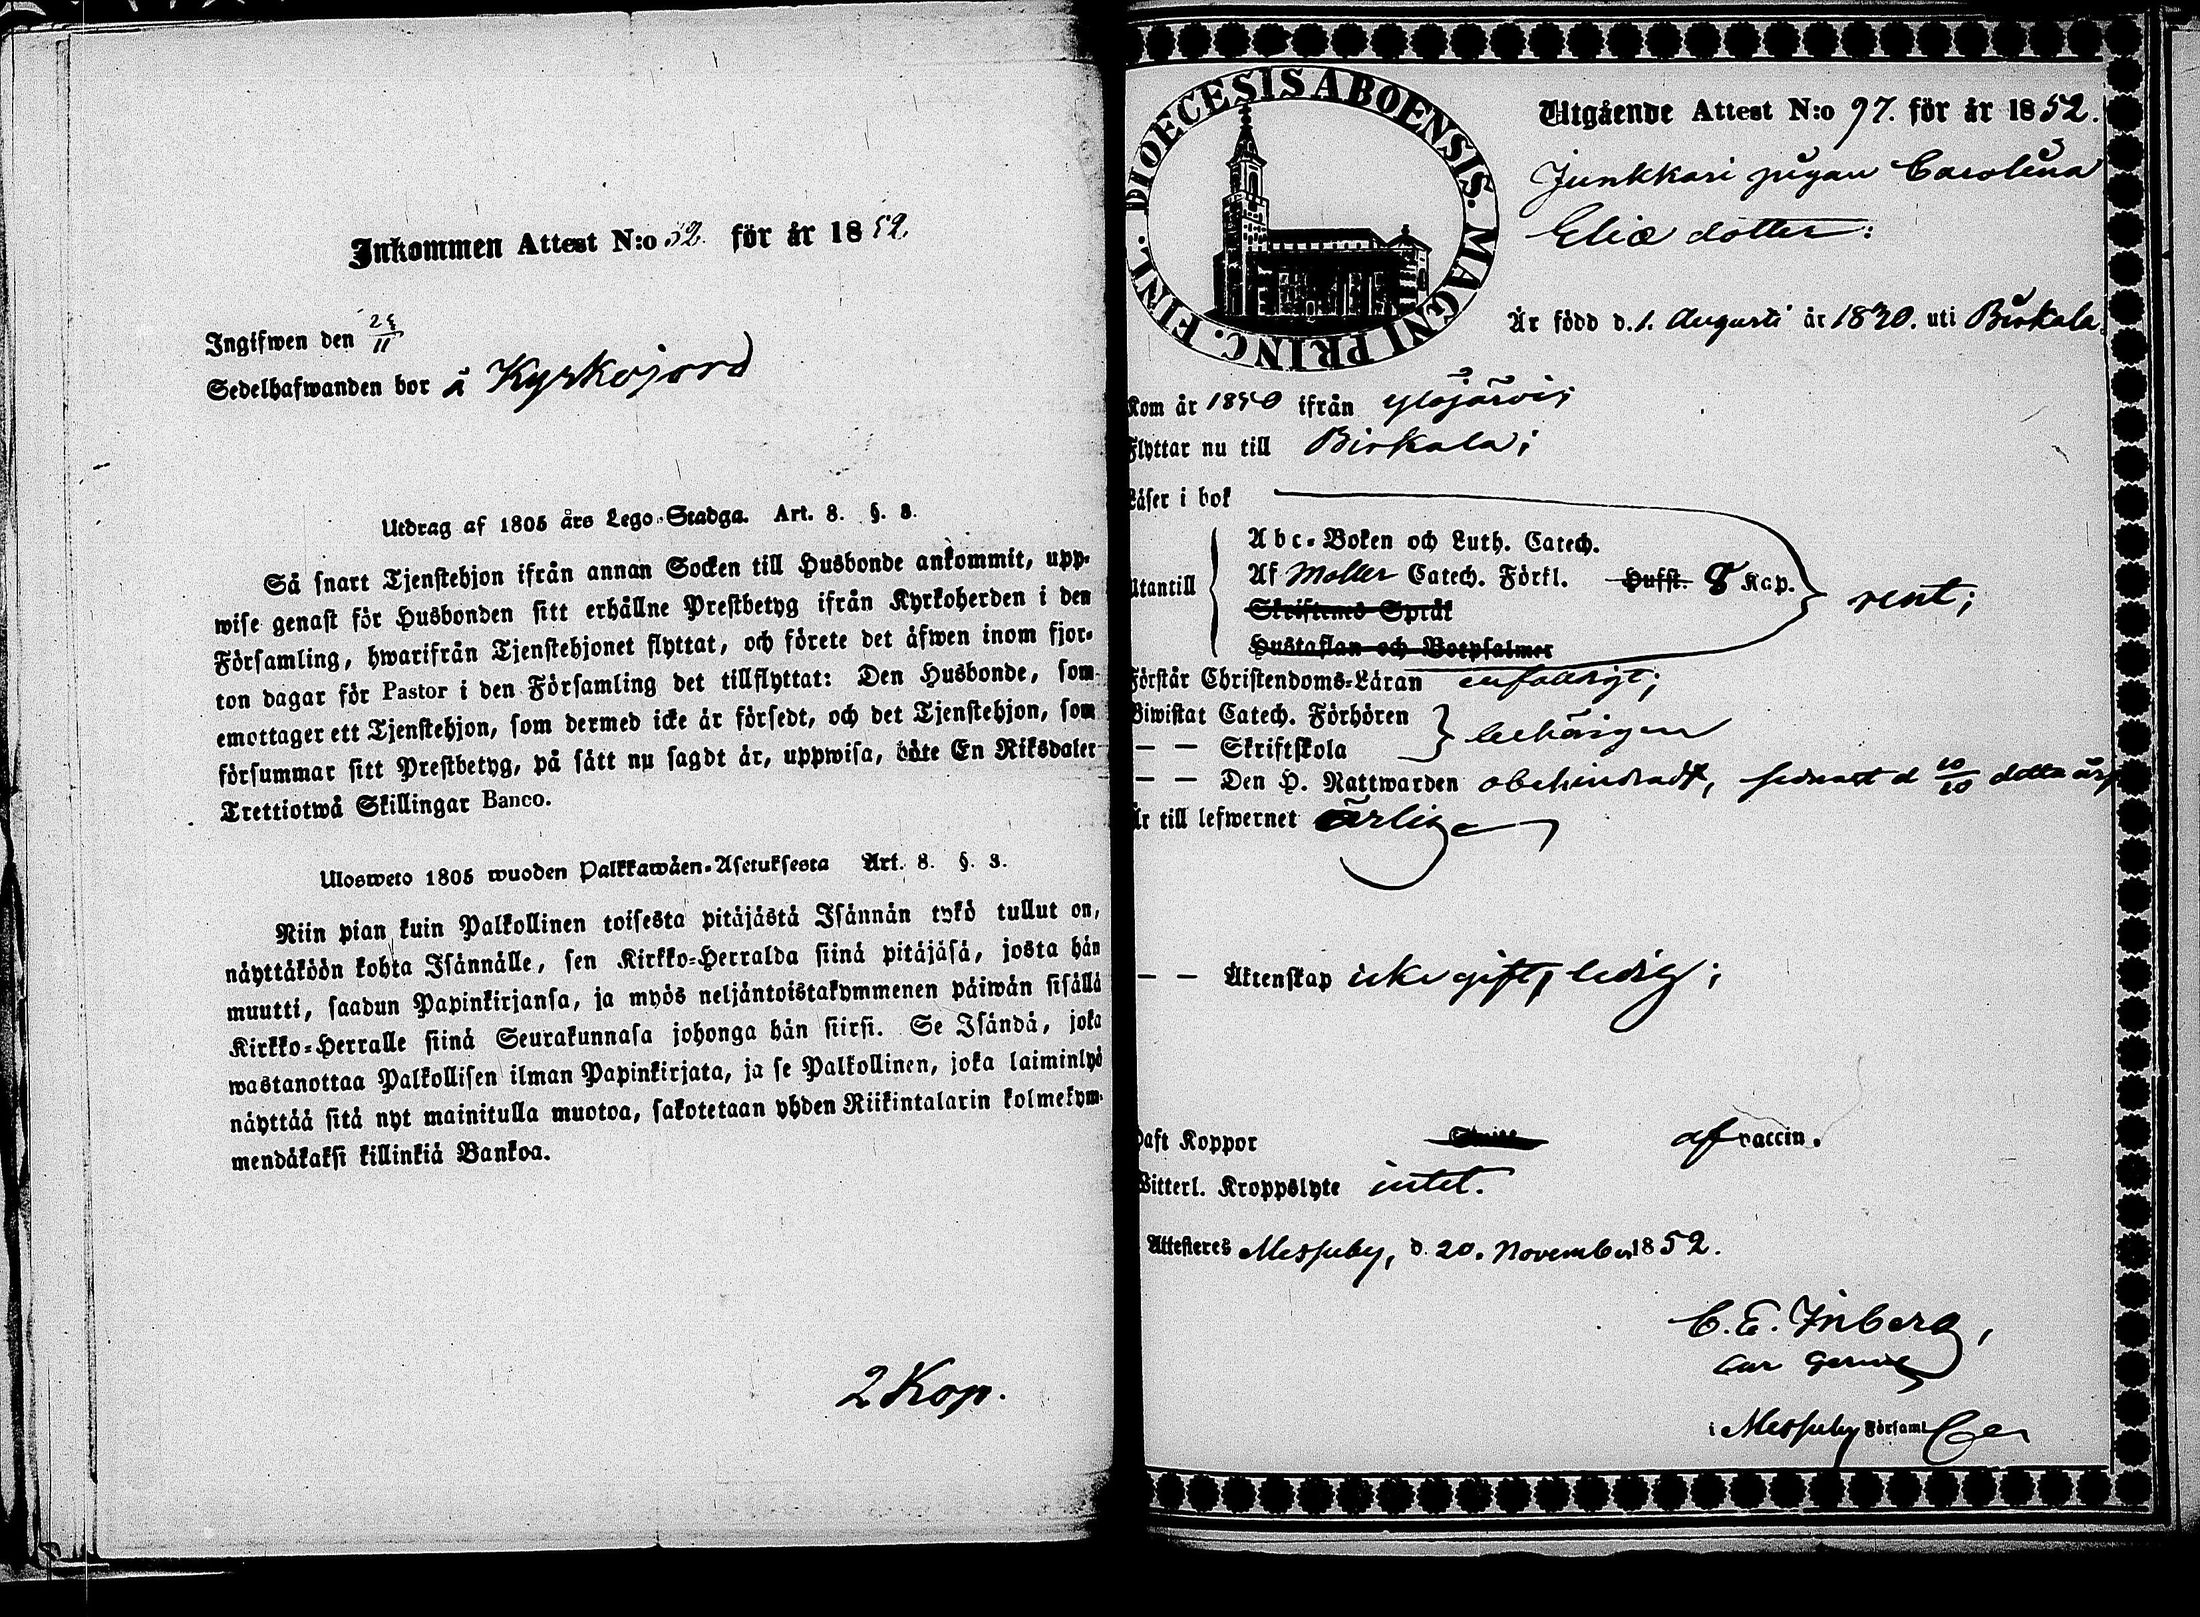 Inkommen Attest N:o 52. för år 1852.
Ingifwen den
Sedelhafwanden bor å Kyrkojord
Utdrag af 1805 års Lego-Stadga. Art. 8. §. 3.
Så snart Tjenstehjon ifrån annan Socken till Husbonde ankommit, upp-
wise genast för Husbonden sitt erhållne Prestbetyg ifrån Kyrkoherden i den
Församling, hwarifrån Tjenstehjonet flyttat, och förete det äfwen inom fjor-
ton dagar för Pastor i den Församling det tillflyttat: Den Husbonde, som
emottager ett Tjenstehjon, som dermed icke är försedt, och det Tjenstehjon, som
försummar sitt Prestbetyg, på sätt nu sagdt är, uppwisa, böte En Riksdaler
Trettiotwå Skillingar Banco.
Ulosweto 1805 wuoden Palkkawäen-Asetuksesta Art. 8. §. 3.
Niin pian kuin Palkollinen toisesta pitäjästä Isännän tykö tullut on,
näyttäköön kohta Isännälle, sen Kirkko-Herralda siinä pitäjäsä, josta hän
muutti, saadun Papinkirjansa, ja myös neljäntoistakymmenen päiwän sisällä
Kirkko-Herralle siinä Seurakunnasa johonga hän siirsi. Se Isändä, joka
wastanottaa Palkollisen ilman Papinkirjata, ja se Palkollinen, joka laiminlyö
näyttää sitä nyt mainitulla muotoa, sakotetaan yhden Riikintalarin kolmekym-
mendäkaksi killinkiä Bankoa.
2 Kop.
DIOECESIS ABOENSIS. MAGNI PRINC. FINL.
Utgående Attest N:o 97. för år 1852.
Junkkari pigan Carolina
Eliæ dotter:
Är född d. 1. Augusti år 1830. uti Birkala.
Kom år 1850 ifrån Ylöjärvi;
Flyttar nu till Birkala;
Läser i bok
Abc-Boken och Luth. Catech.
Utantill Af Möller Catech. Förkl. Hufst. 8 Kap. rent;
Skriftenes Språk
Hustaflan och Botpsalmer
Förstår Christendoms-Läran enfaldigt;
Biwistat Catech. Förhören
— — Skriftskola behörigen
— — Den H. Nattwarden obehindradt, senast d 10/10 detta års
Är till lefwernet ärlig
— — Äktenskap icke gift, ledig;
Haft Koppor af vaccin.
Witterl. Kroppslyte intet.
Attesteres Messuby, d. 20. November 1852.
C. E. Inberg,
i Messuby Församl